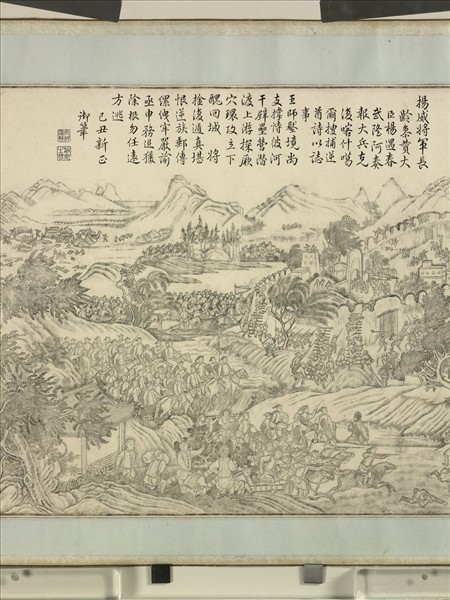 揚威將軍長
齡參贊大
臣楊遇春
武隆阿奏
報大兵克
復喀什噶
爾擒捕逆
酋詩以誌
事
王師壓境尚
支撐恃彼河
干壘營潛
渡上游探厥
穴環攻立下
醜回城 將
復遁真堪
恨逆族郵傳
牢嚴諭
亟申務追獲
除根勿任遠
方逃
己丑新正
御筆